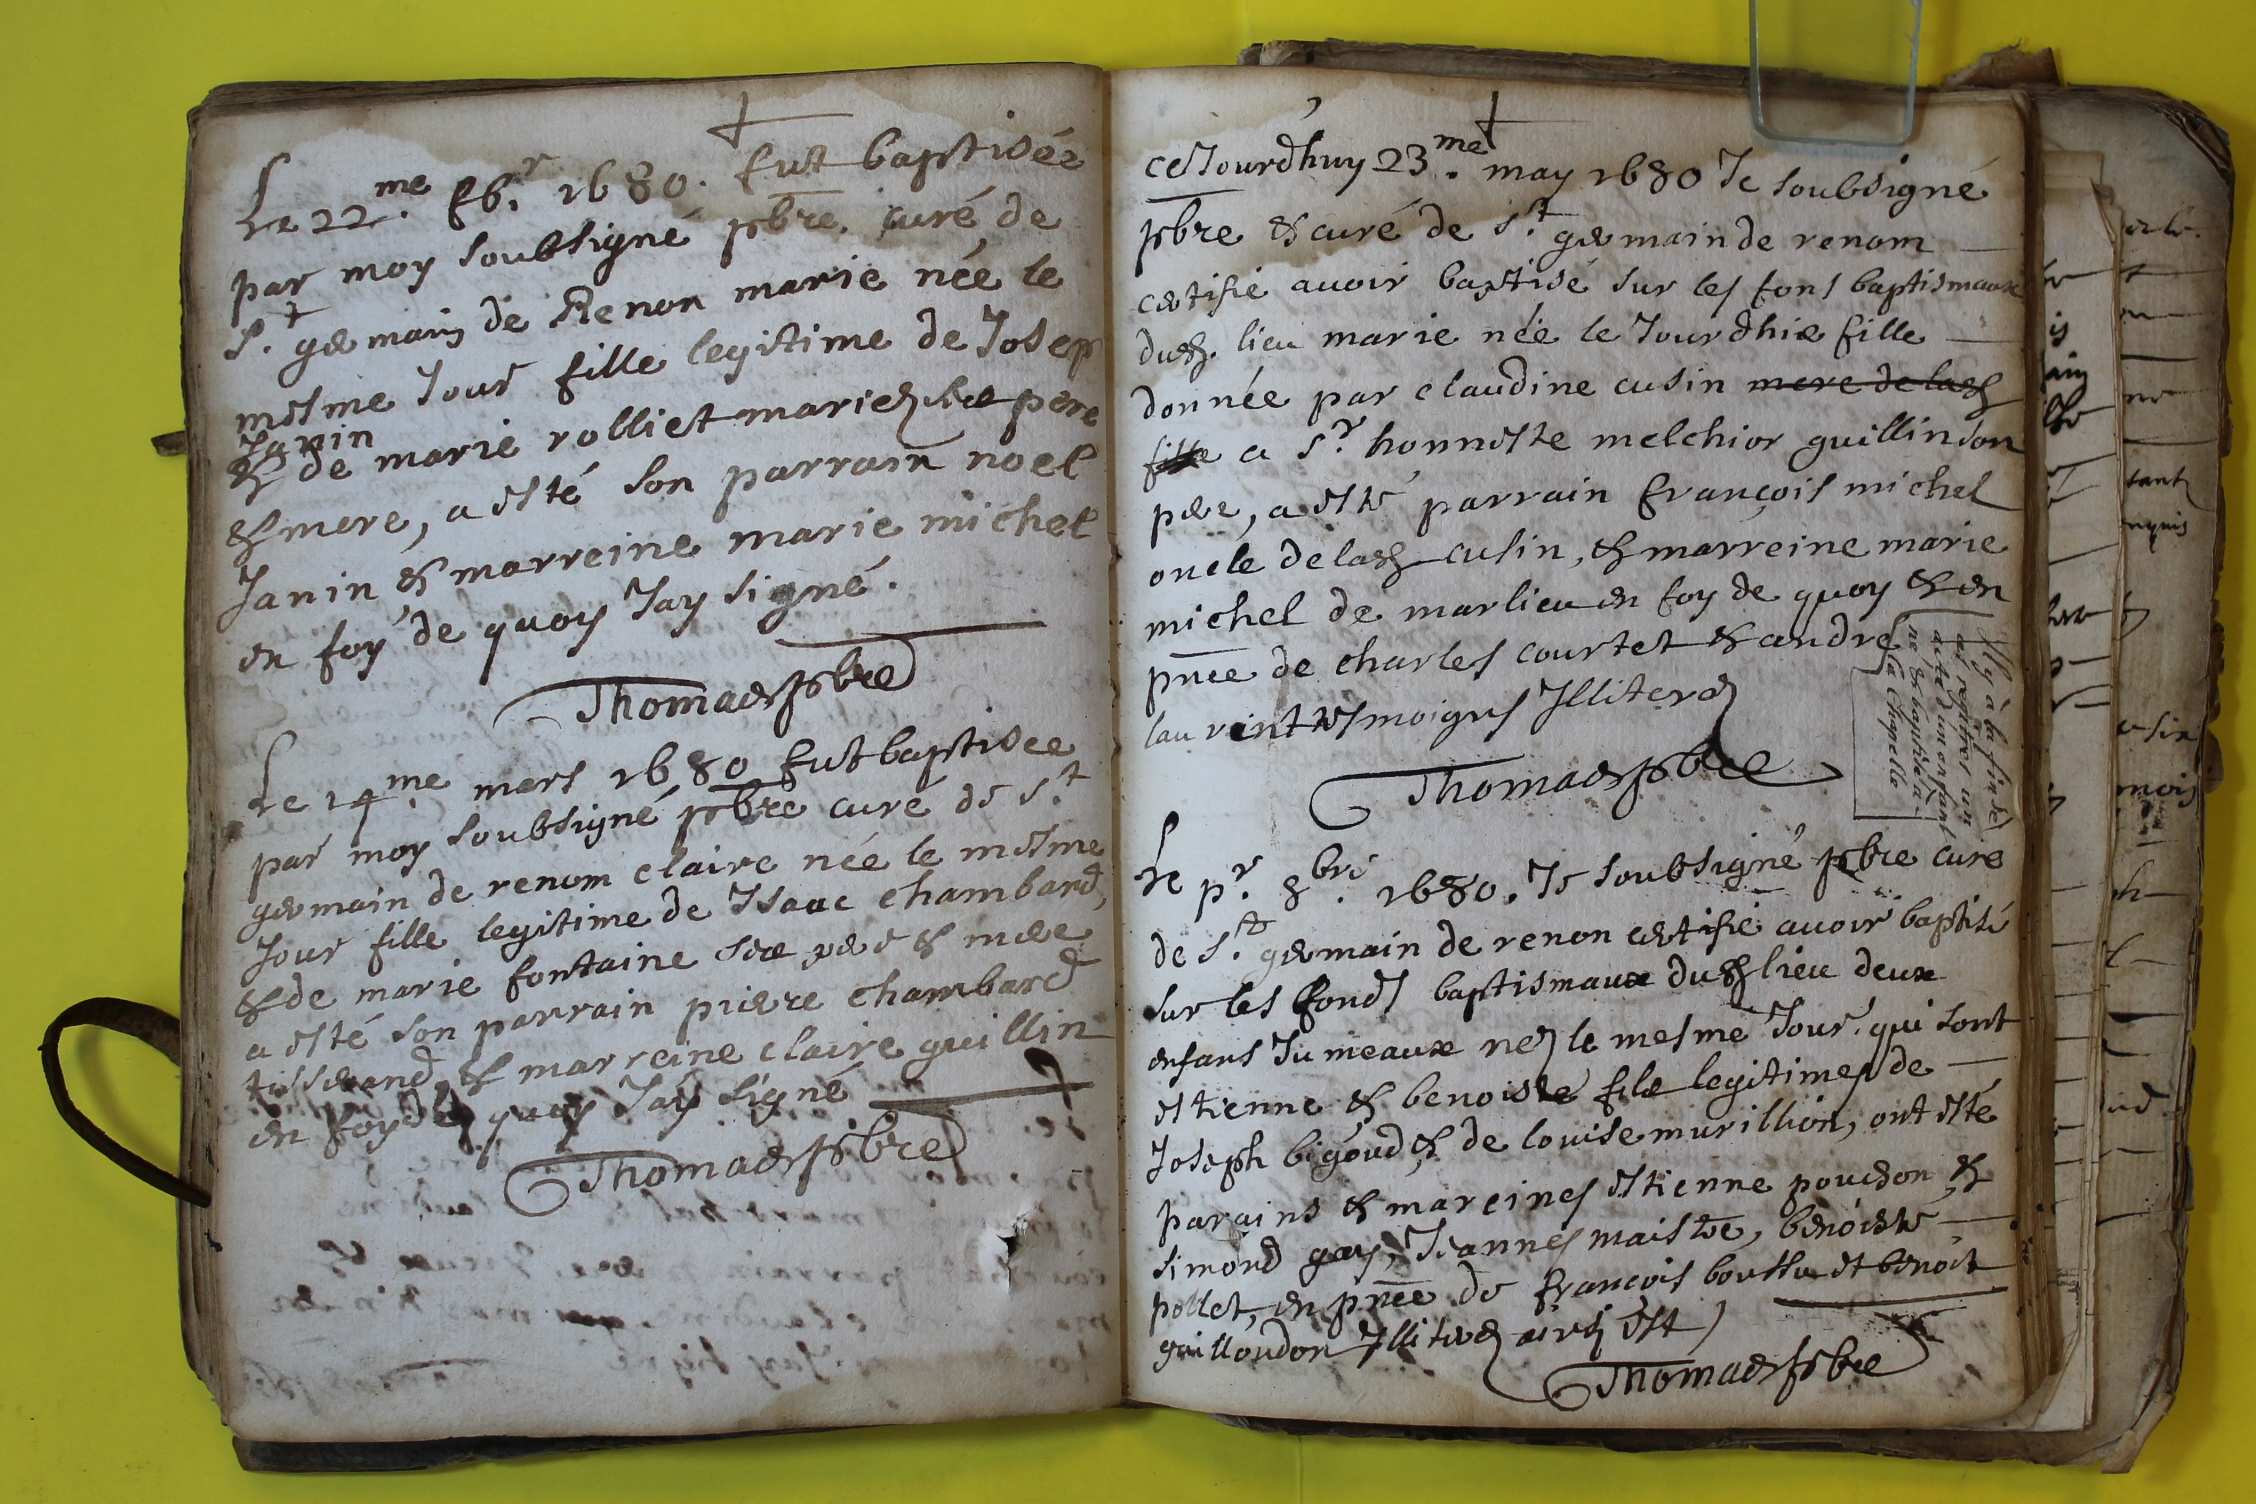 Le 22.me feb.r 1680. fut baptisée
par moy soubsigné pbre. curé de
S.t germain de Renon marie née le
mesme Jour fille legitime de Josep
Janin
& de marie rolliet mariez ses pere
& mere, a esté son parrain noel
Janin & marreine marie michel
en foy de quoy Jay signé.
Thomas pbre
Le 14.me mars 1680 fut baptisee
par moy soubsigné pbre curé de S.t
germain de renom claire née le mesme
Jour fille legitime de Isaac chambard,
& de marie fontaine ses pere & mere
a esté son parrain pierre chambard
tisserand & marreine claire guillin
en foy de quoy Jay signé
Thomas pbre
ceJourdhuy 23.me may 1680 Je soubsigné
pbre & curé de S.t germain de renom
certifie avoir baptisé sur les fons baptismaux
dud. lieu marie née le Jourdhier fille
donnée par claudine cusin mere de lad
fille a S.r honneste melchior guillin son
pere, a esté parrain françois michel
oncle de lad cusin, & marreine marie
michel de marlieu en foy de quoy & en
pnce de charles courtet & andre
laurent tesmoigns Illiterez
Thomas pbre
Il y à la fin de
ces regîtres un
acte d'un enfant
né & baptisé a
la Chapelle
Le pr. 8.bre 1680. Je soubsigné pbre cure
de S.t germain de renon certifie avoir baptisé
sur les fonds baptismaux dud lieu deux
enfans Jumeaux nez le mesme Jour qui sont
estienne & benoiste fils legitimes de
Joseph bigoud & de louise murillion, ont esté
parains & mareines estienne pouchon &
simond gay, Jeannes maistre, benoiste
pollet, en pnce de françois bouttu et benoit
guilloudon Illiterez ainsi est
Thomas pbre